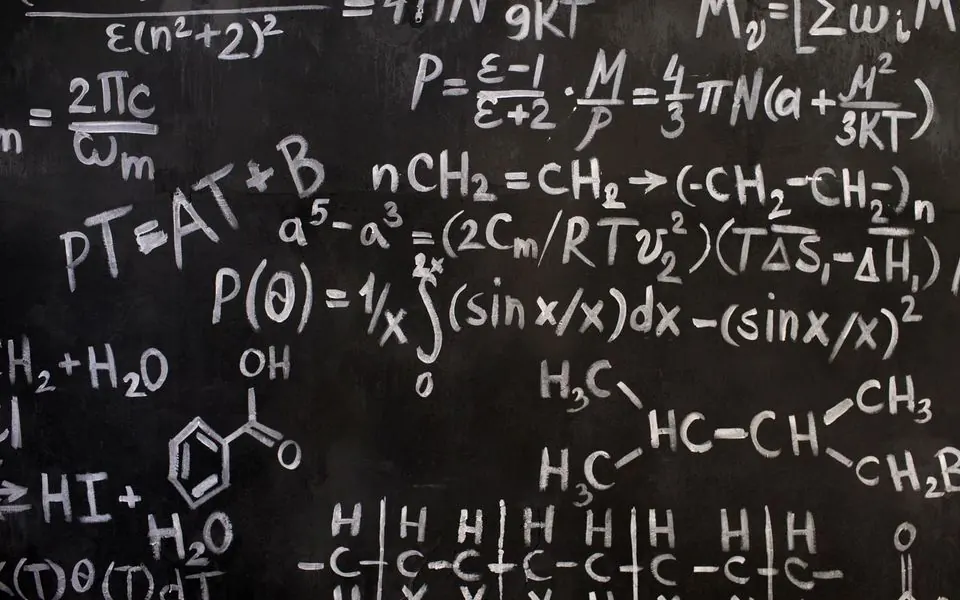 = 4πN 9KT
ε(n²+2)²
M_v = [Σω_i M
P = ε-1/ε+2 · M/P = 4/3 πN(a + M²/3KT)
m = 2πc/ω_m
PT = AT + B
nCH₂ = CH₂ → (-CH₂-CH₂-)n
a⁵ - a³ = (2Cm/RTv₂²)(TΔS₁-ΔH₁)/
P(θ) = 1/x ∫₀²ˣ (sin x/x)dx - (sinx/x)²
H₂ + H₂O
OH
O
H₃C CH₃
HC-CH
H₃C CH₂B
HI +
H₂O
H H H H H H H H
-C-C-C-C-C-C-C-C-
O
(T)θ(T)dT